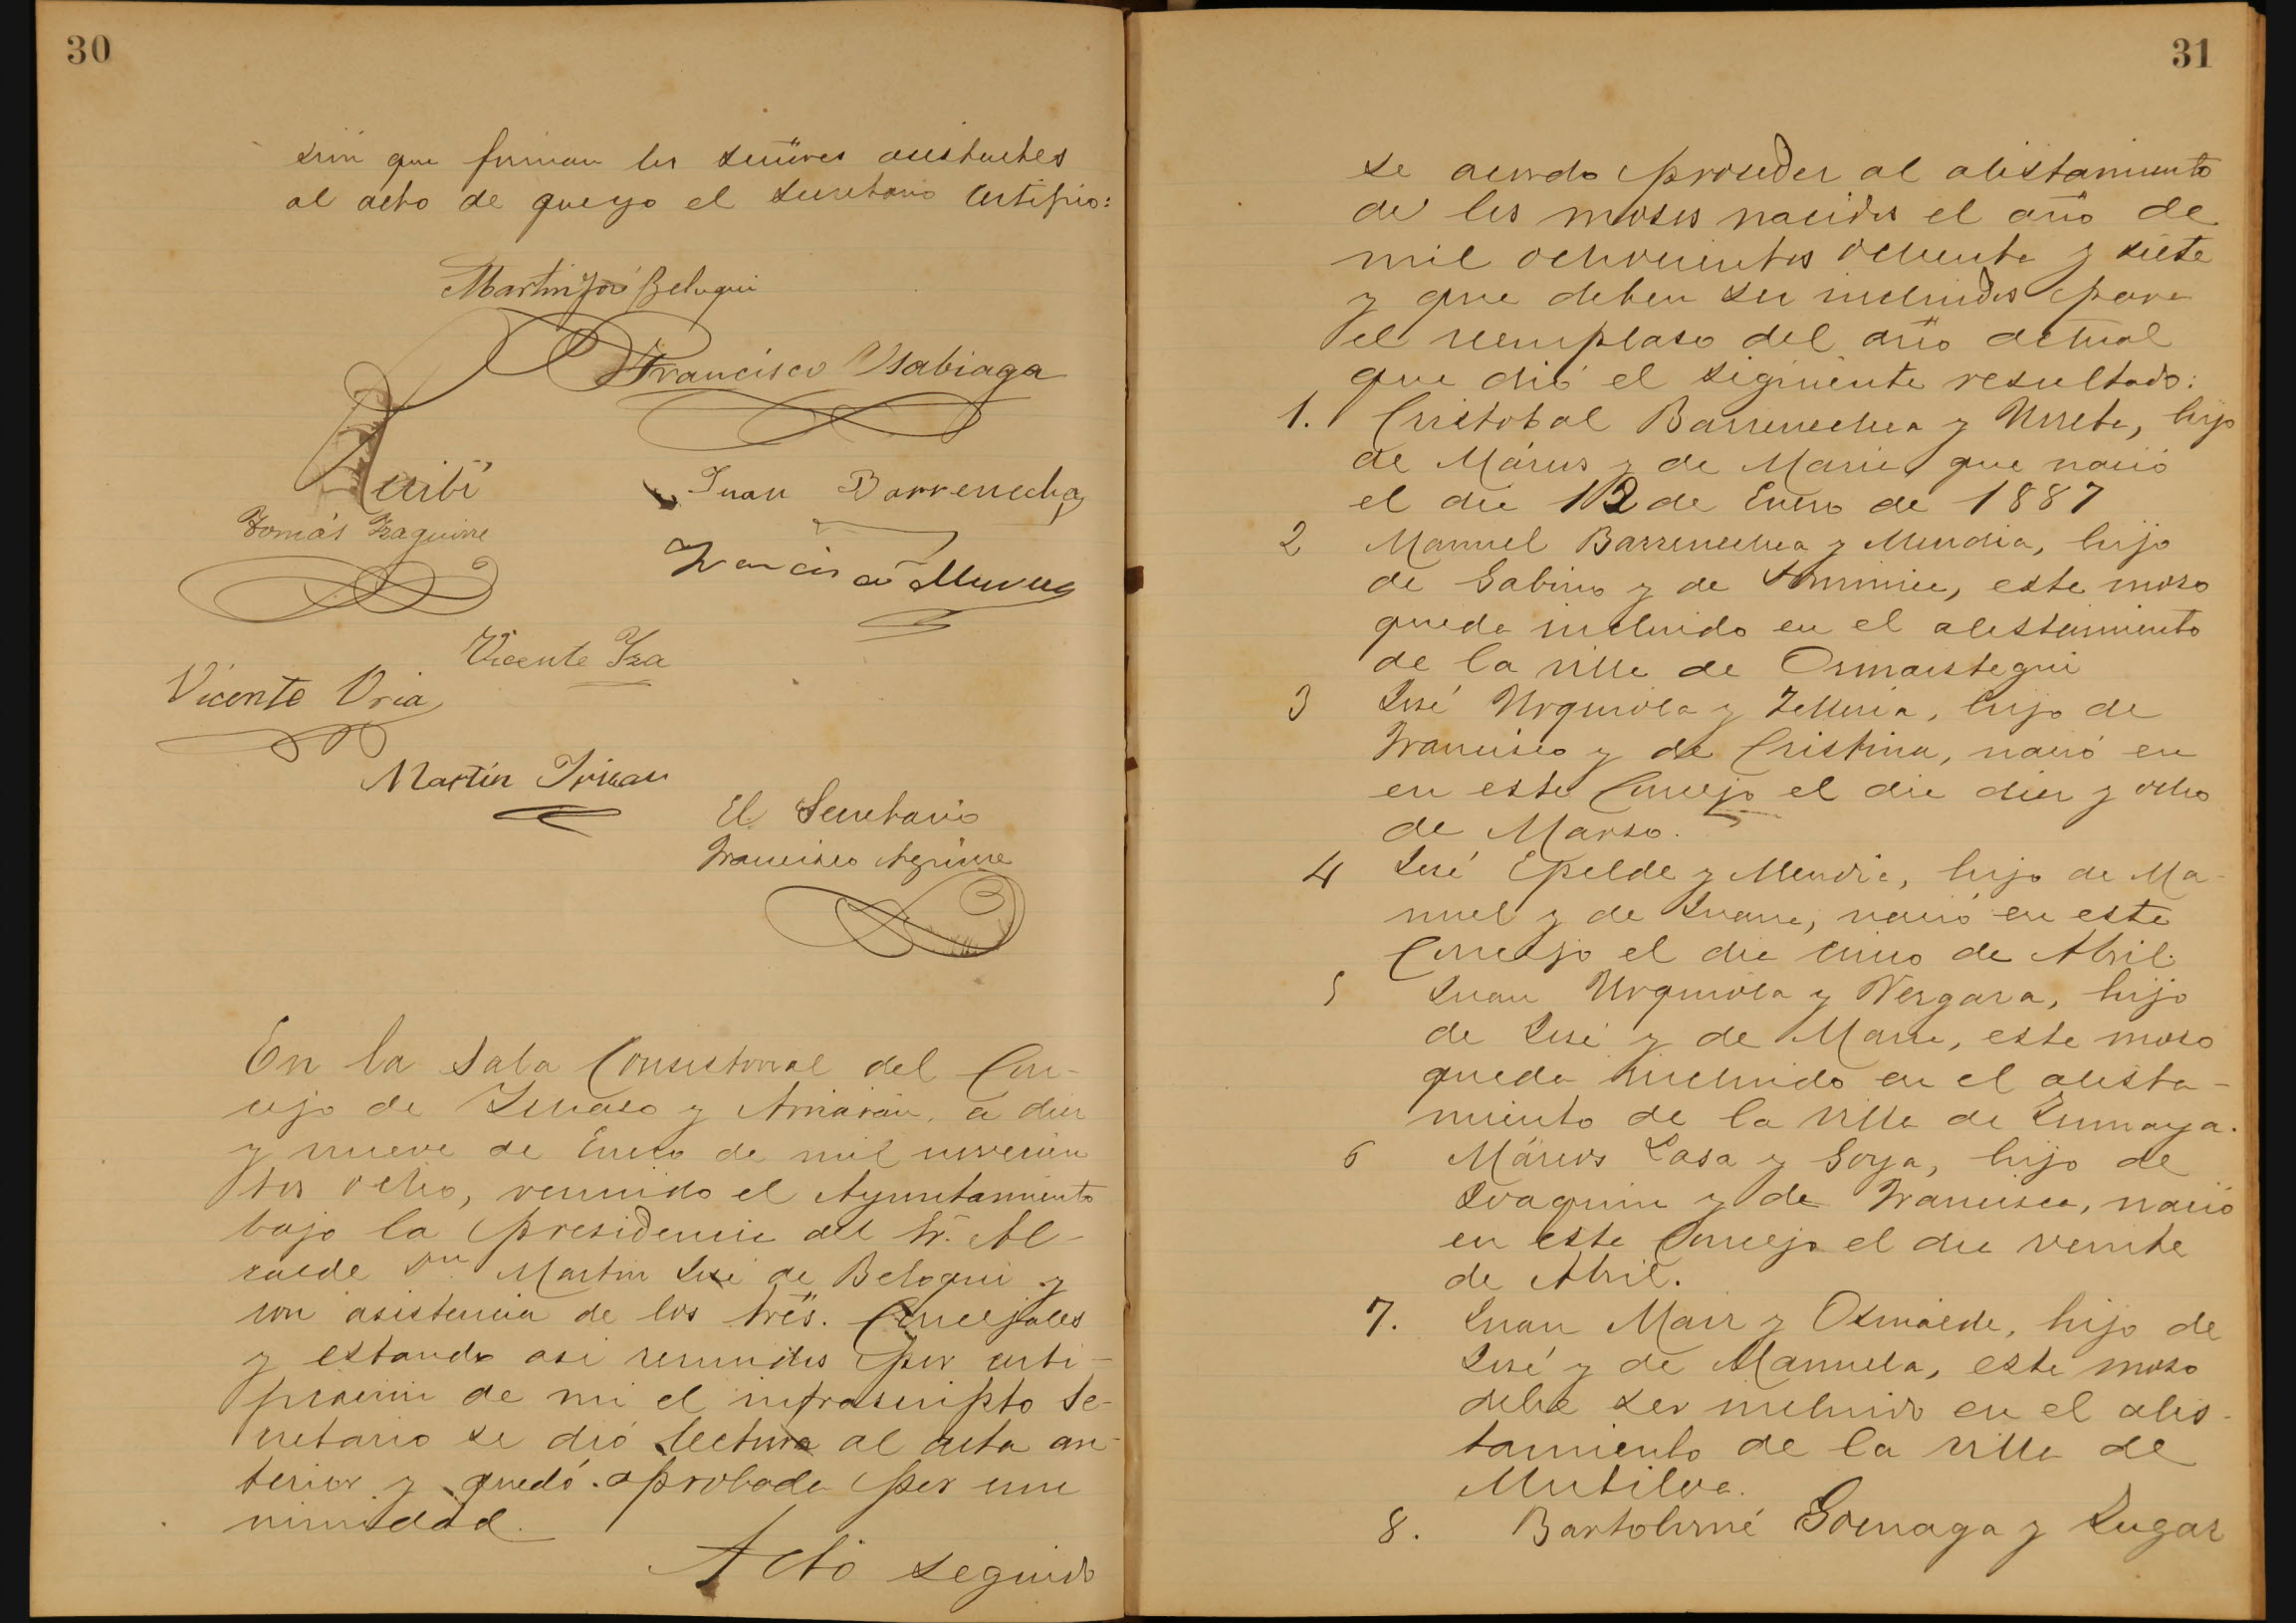 30
sión que firman los señores asistentes
al acto de que yo el Secretario Certifico:
Martin José Belogui
Francisco Usabiaga
Tomás Yzaguirre
Juan Barrenechea
Francisco
Vicente Yza
Vicente Oria
Martin
El Secretario
Francisco Aguirre
En la Sala Consistorial del Con-
cejo de Ichaso y Arriarán, a diez
y nueve de Enero de mil novecien
tos ocho, reunido el Ayuntamiento
bajo la presidencia del Sr. Al-
calde Dn. Martin José de Belogui y
con asistencia de los Sres. Concejales
y estando asi reunidos por certi-
ficación de mi el infrascripto Se-
cretario se dió lectura al acta an-
terior y quedó aprobada por una
nimidad.
Acto seguido
31
se acordo proceder al alistamiento
de los mosos nacidos el año de
mil ochocientos ochenta y siete
y que deben ser incluidos para
el reemplaso del año actual
que dió el siguiente resultado:
1. Cristobal Barrenechea y Urreta, hijo
de Márcos y de Maria que nació
el dia 12 de Enero de 1887
2 Manuel Barrenechea y Mendia, hijo
de Gabino y de este moso
queda incluido en el alistamiento
de la villa de Ormaistegui
3 José Urquiola y Telleria, hijo de
Francisco y de Cristina, nació en
en este Concejo el dia diez y ocho
de Marso.
4 José Epelde y Mendia, hijo de Ma-
nuel y de Juana, nació en este
Concejo el dia cinco de Abril.
5 Juan Urquiola y Vergara, hijo
de José y de Maria, este moso
queda incluido en el alista-
miento de la villa de Zumaya.
6 Márcos Lasa y Goya, hijo de
Joaquin y de Francisca, nació
en este Concejo el dia veinte
de Abril.
7. Juan Maiz y Osinalde, hijo de
José y de Manuela, este moso
debe ser incluido en el alis-
tamiento de la villa de
Mutiloa.
8. Bartolomé Goenaga y Lugar